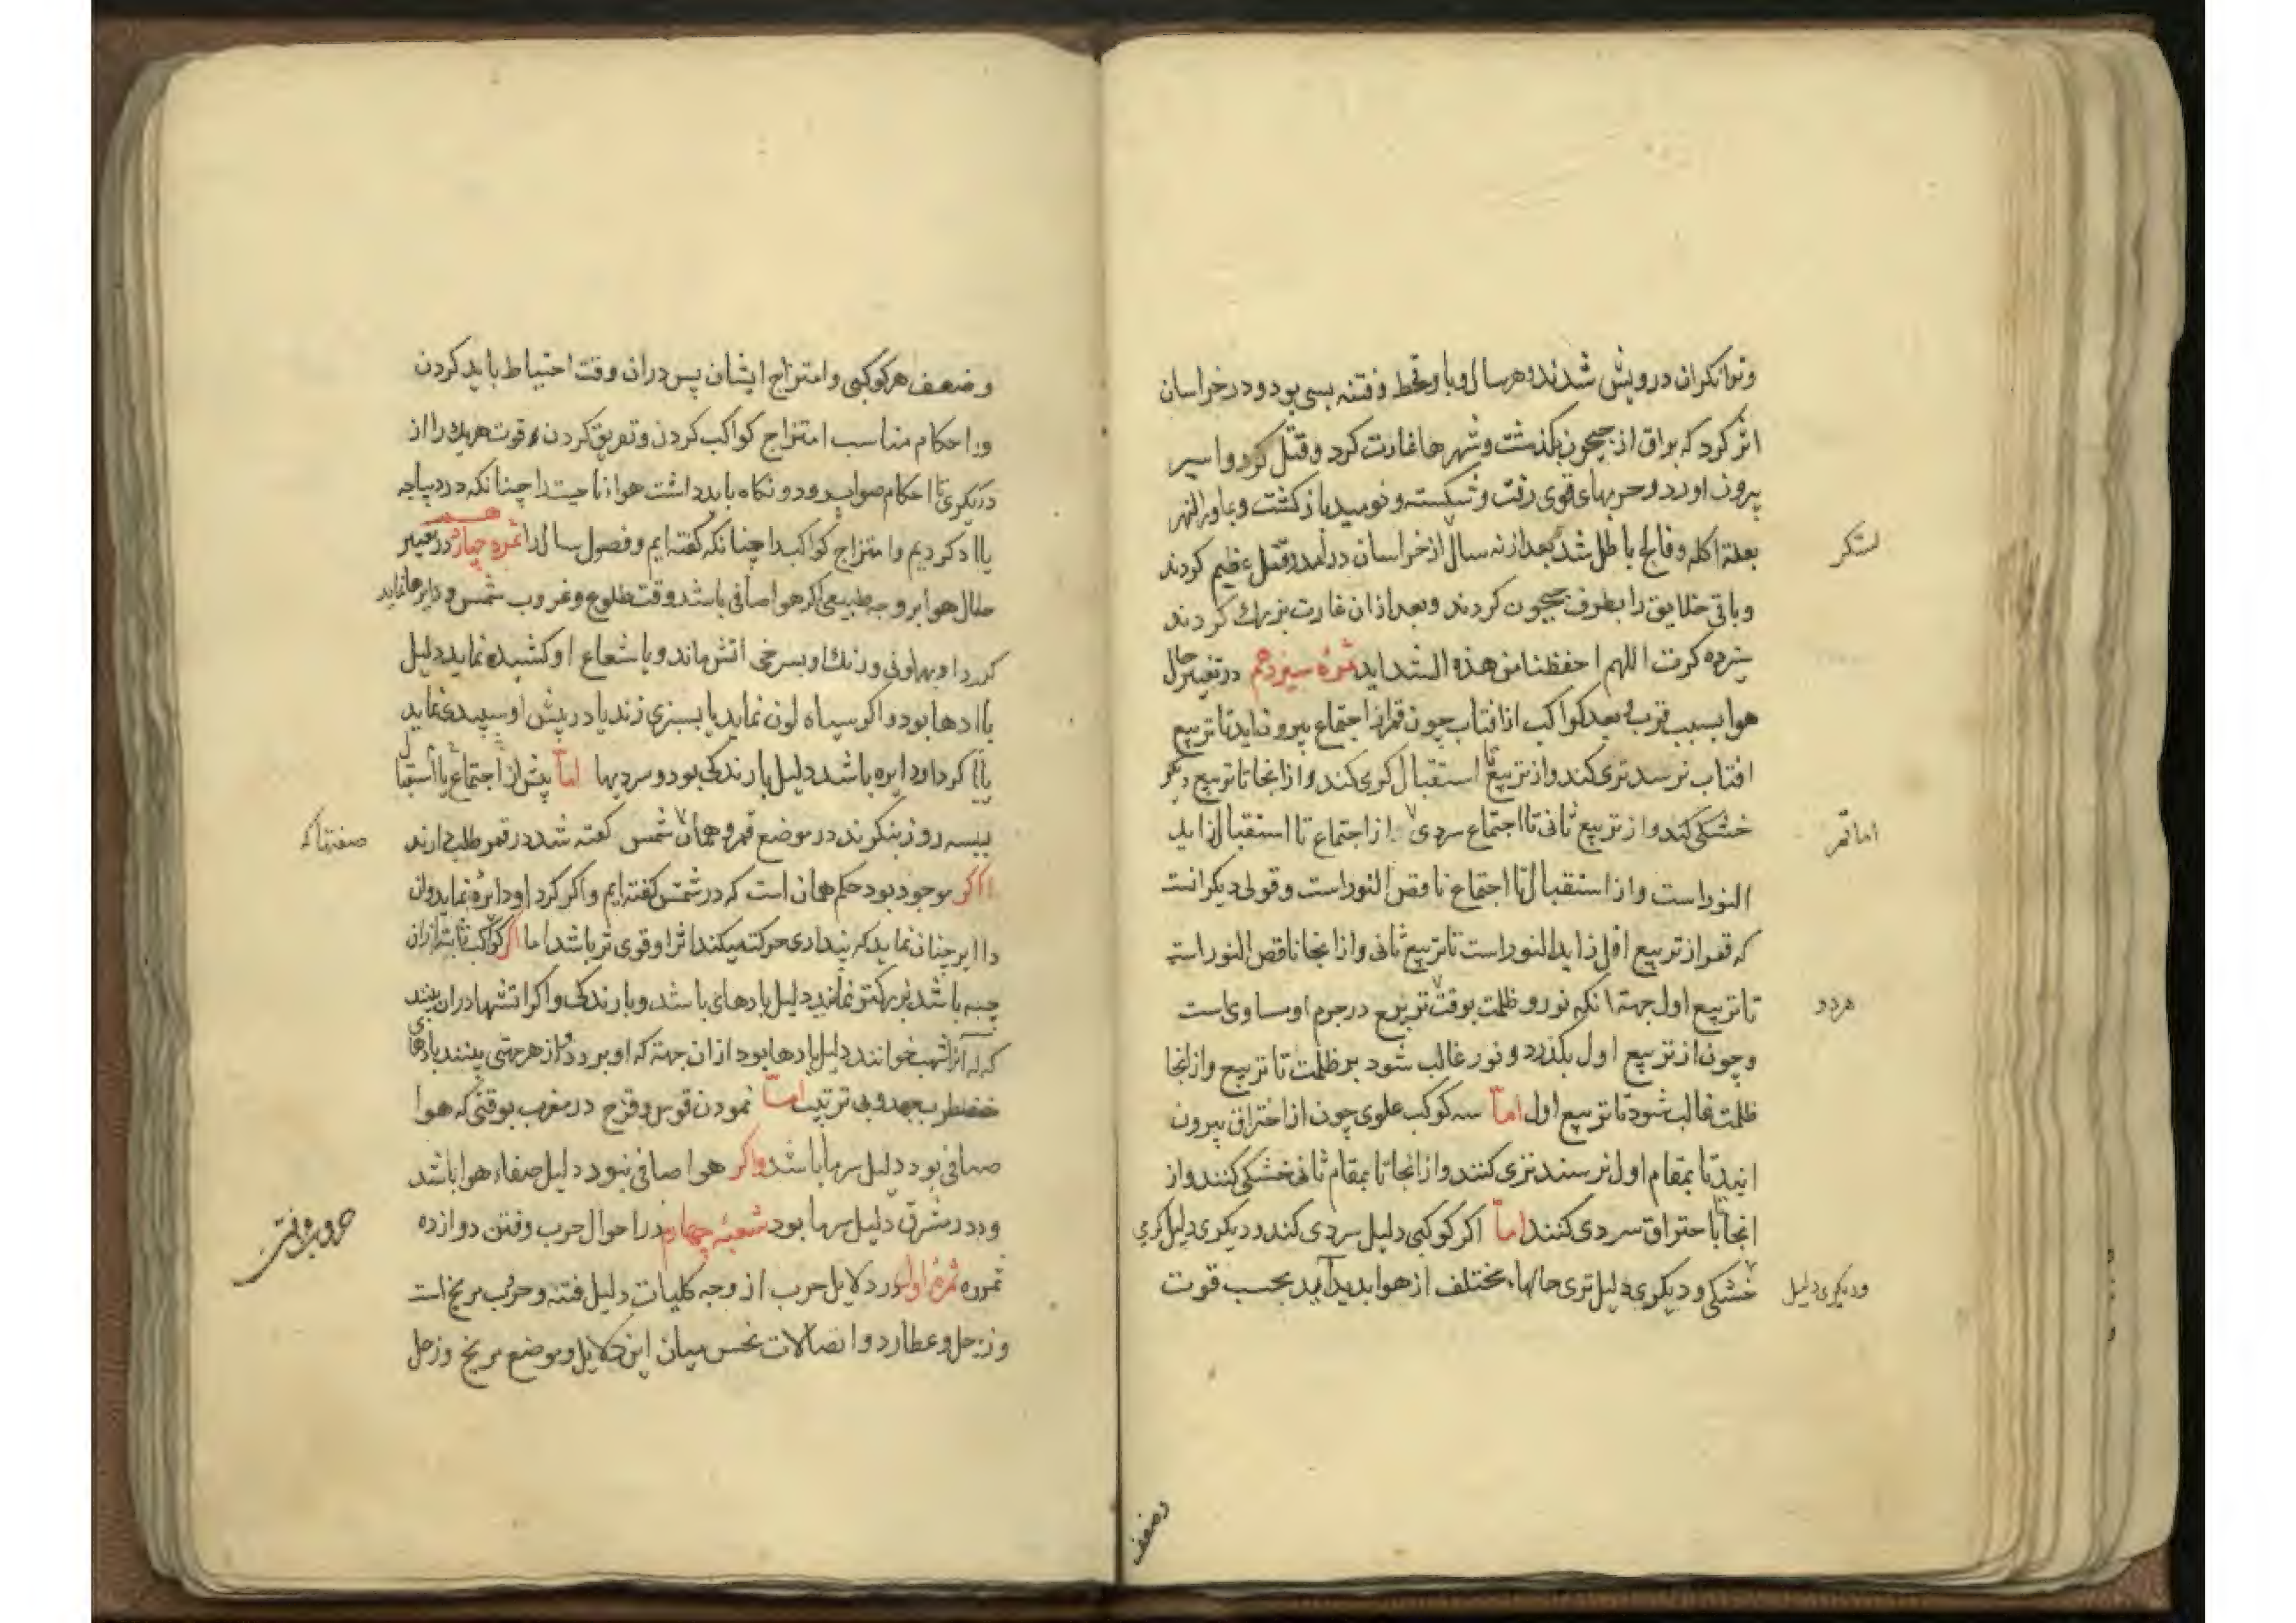 وتوانکران درویش شدند و هر سال وبا و قحط و فتنه بسی بود و در خراسان
اثر کرد که براق از جیحون بکذشت و شهرها غارت کرد و قتل کرد و اسیر
بیرون اورد و حربهای قوی رفت و شکسته و نومید باز کشت و بماورالنهر
لشکر
بعلة اکله و فالج باطل شد بعد از نه سال از خراسان در آمد و قتل عظیم کردند
و باقی خلایق را بطرف جیحون کردند و بعد از ان غارت بزرك کردند
سیزده کرت اللهم احفظنا من هذه الشداید ثمرۀ سیزدهم در تغییر حال
هوا بسبب قرب و بعد کواکب از افتاب چون قمر از اجتماع بیرون اید تا تربیع
افتاب نرسد تری کند و از تربیع تا استقبال کرمی کند و از انجا تا تربیع دیکر
خشکی کند و از تربیع ثانی تا اجتماع سردی از اجتماع تا استقبال زاید
اما قمر
النور است و از استقبال تا اجتماع ناقص النور است و قولی دیکر انست
که قمر از تربیع اول زاید النور است تا تربیع ثانی و از انجا ناقص النور است
تا تربیع اول جهة انکه نور و ظلمت بوقت تربیع در جرم او مساوی است
هر دو
و چون از تربیع اول بکذرد و نور غالب شود بر ظلمت تا تربیع و از انجا
ظلمت غالب شود تا تربیع اول امّا سه کوکب علوی چون از احتراق بیرون
ایند تا بمقام اول نرسند تری کنند و از انجا تا بمقام ثانی خشکی کنند و از
انجا تا احتراق سردی کنند امّا اکر کوکبی دلیل سردی کند و دیکری دلیل کرمی
خشکی و دیکری دلیل تری حالهاء مختلف از هوا بدید آید بحسب قوت
و دیکری دلیل
وضعف
وضعف هر کوکبی و امتزاج ایشان پس در ان وقت احتیاط باید کردن
در احکام مناسب امتزاج کواکب کردن و تفریق کردن و قوت هریك را از
دیکری تا احکام صواب رود و نکاه باید داشت هواء ناحیت را چنانکه در دیباجه
یااد کردیم و امتزاج کواکب را چنانکه کفته ایم و فصول سال را ثمره چهاردهم در تغییر
حال هوا بر وجه طبیعی اکر هوا صافی باشد وقت طلوع و غروب شمس و دایرها نماید
کرد او بهاونی و رنك او بسرخی اتش ماند و یا شعاع او کشیده نماید دلیل
بادها بود و اکر سیاه لون نماید یا بسبزی زند یا در پیش او سپیدی نماید
یاا کرد او دایره باشد دلیل بارندکی بود و سردیها امّا پیش از اجتماع یا استقبال
بسه روز بنکرند در موضع قمر و همان شمس کفته شد در قمر طلب دارند
صفتها که
اکر موجود بود حکم همان است که در شمس کفته ایم و اکر کرد او دایره نماید و ان
داایر چنان نماید که پنداری حرکت میکند اثر او قوی تر باشد اما اکر کواکب ثابته از ان
چه باشد بزرکتر نماید دلیل بادهای باشد و بارندکی و اکر اتشها در ان بینند
که آنرا شهب خوانند دلیل بادها بود از ان جهة که او برود و از هر جهتی بینند بادهای
مضطرب جهد و بی ترتیب امّا نمودن قوس و قزح در مغرب بوقتی که هوا
صافی بود دلیل سرما باشد و اکر هوا صافی نبود دلیل صفاء هوا باشد
و در مشرق دلیل سرما بود شعبۀ چهارم در احوال حرب و فتن دوازده
ثمره ثمرۀ اول در دلایل حرب از وجه کلیات دلیل فتنه و حرب مریخ است
و زحل و عطارد و اتصالات نحس میان این دلایل و موضع مریخ و زحل